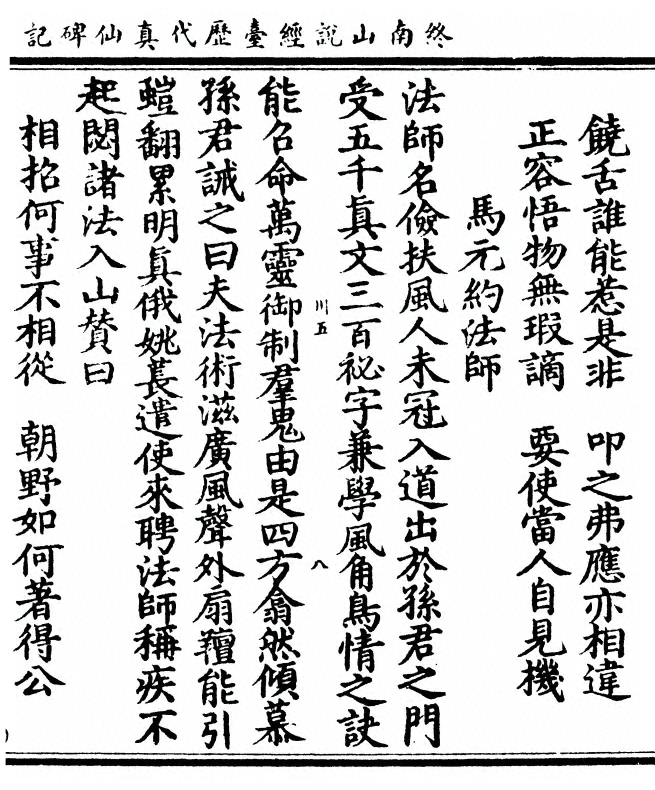 終南山說經臺歷代真仙碑記
饒舌誰能惹是非　叩之弗應亦相違
正容悟物無瑕謫　要使當人自見機
馬元約法師
法師名儉扶風人未冠入道出於孫君之門
受五千眞文三百祕字兼學風角鳥情之訣
川五　八
能召命萬靈御制羣鬼由是四方翕然傾慕
孫君誡之曰夫法術滋廣風聲外扇羶能引
螘翻累明眞俄姚萇遣使來聘法師稱疾不
起閟諸法入山贊曰
相招何事不相從　朝野如何著得公